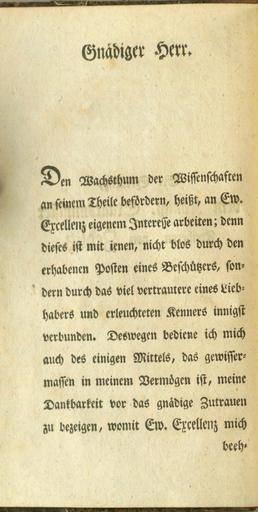 Gnädiger Herr.
Den Wachsthum der Wissenschaften
an seinem Theile befördern, heißt, an Ew.
Excellenz eigenem Interesse arbeiten; denn
dieses ist mit jenen, nicht blos durch den
erhabenen Posten eines Beschützers, son-
dern durch das viel vertrautere eines Lieb-
habers und erleuchteten Kenners innigst
verbunden. Deswegen bediene ich mich
auch des einigen Mittels, das gewisser-
massen in meinem Vermögen ist, meine
Dankbarkeit vor das gnädige Zutrauen
zu bezeigen, womit Ew. Excellenz mich
beeh-